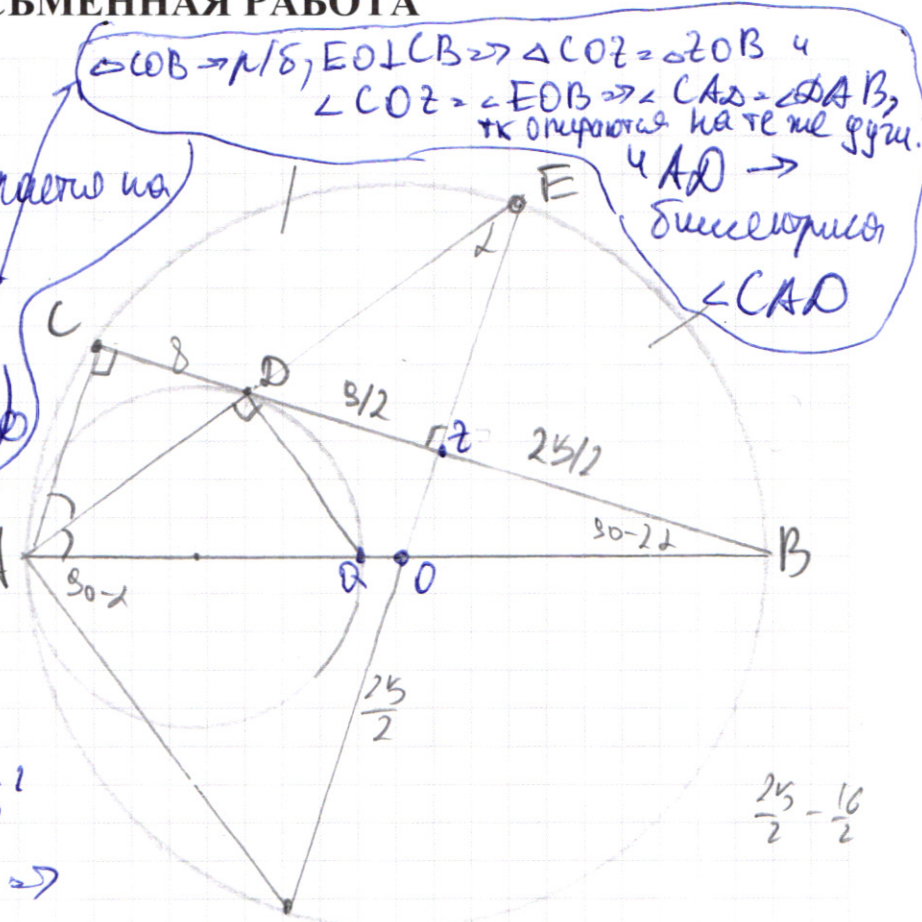 СЬМЕННАЯ РАБОТА
△COB → р/б, EO⊥CB => △COZ = △ZOB и
∠COZ = ∠EOB => ∠CAD = ∠DAB,
тк опираются на те же дуги.
и AD →
биссектриса
∠CAD
ается на
E
α
C
8
D
9/2
Z
25/2
90-2α
B
90-α
Q
O
25/2
25/2 - 16/2
=>